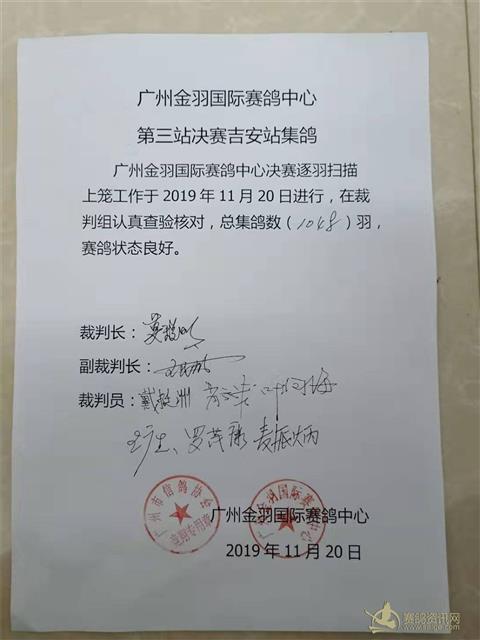 广州金羽国际赛鸽中心
第三站决赛吉安站集鸽
广州金羽国际赛鸽中心决赛逐羽扫描
上笼工作于2019年11月20日进行，在裁
判组认真查验核对，总集鸽数（1048）羽，
赛鸽状态良好。
裁判长：
副裁判长：
裁判员：戴挺洲
罗茂彩 麦振炳
广州市信鸽协会
竞翔专用章
广州金羽国际赛鸽中心
广州金羽国际赛鸽中心
2019年11月20日
赛鸽资讯网